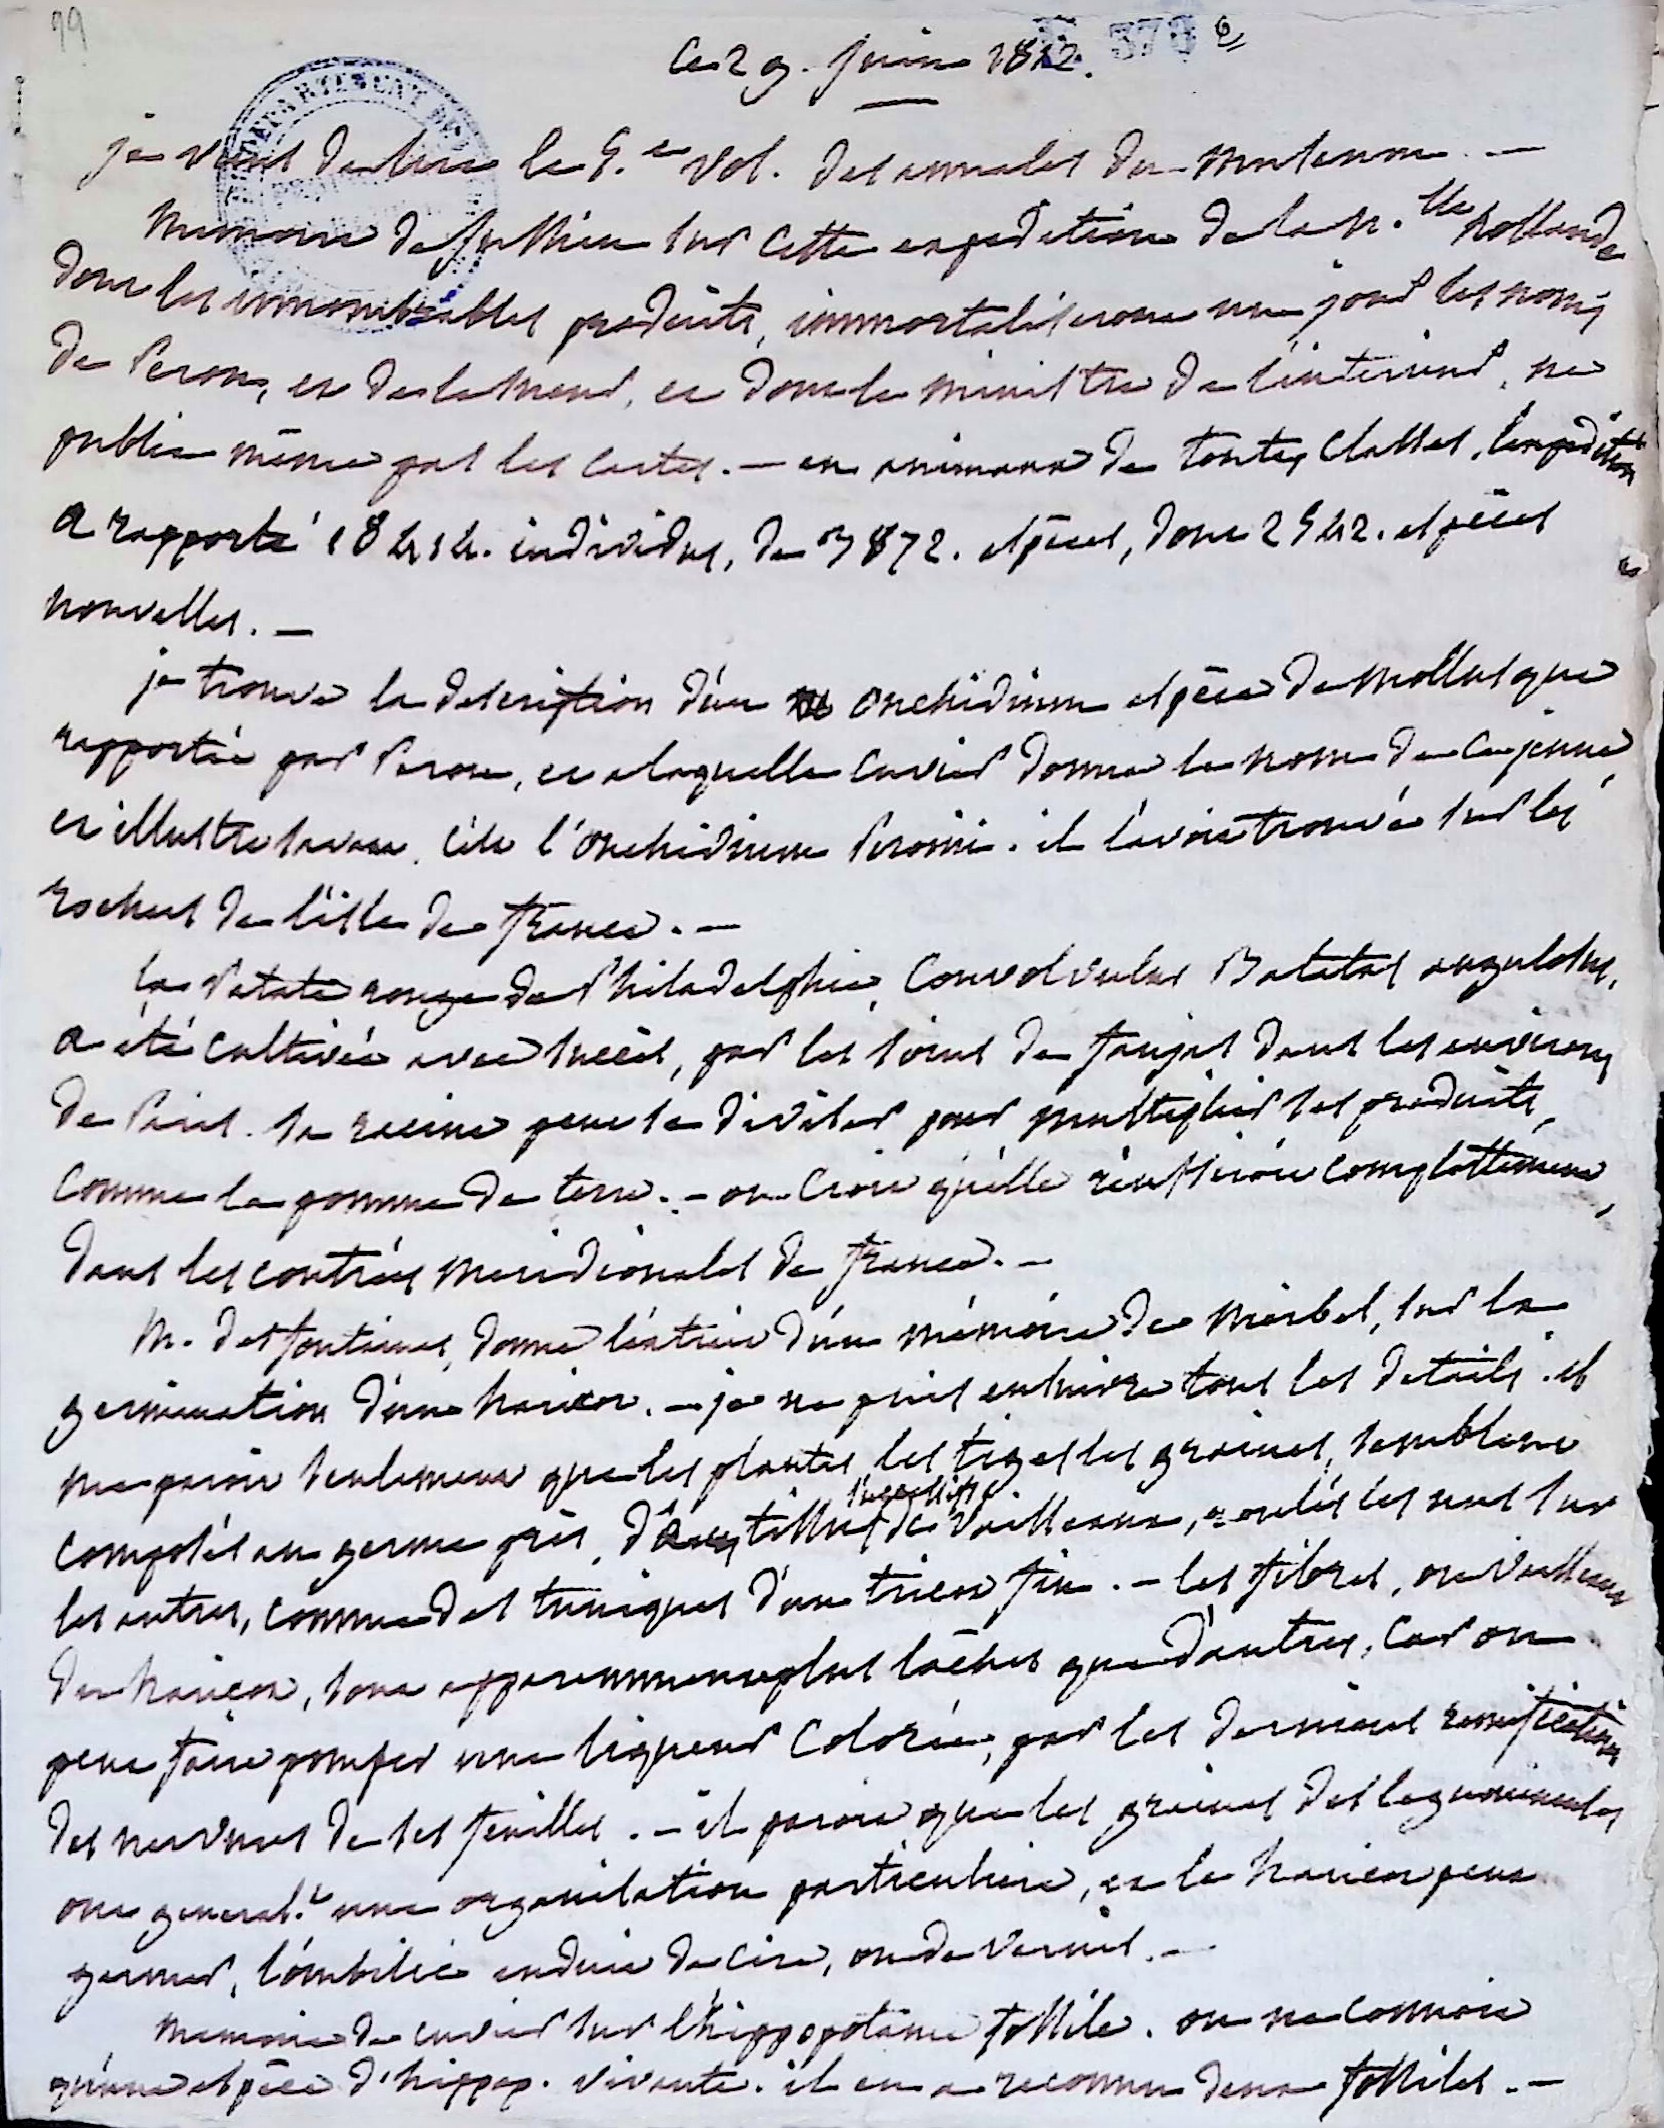 99
Ce 29. juin 1812.
je viens de lire le 5.e vol. des annales du museum. —
Memoire de Jussieu sur cette expedition de la n.lle hollande
dont les innombrables produits, immortaliseront un jour les noms
de Peron, et de lesueur, et dont le ministre de l'interieur, ne
publie même pas les cartes. — en animaux de toutes classes, l'expedition
a rapporté 18414. individus, de 3872. espèces, dont 2542. espèces
nouvelles. —
je trouve la description d'un onchidium espèce de mollusque
rapportée par Peron, et a laquelle Cuvier donne le nom de ce jeune
et illustre savant. C'est l'onchidium Peronii. il l'avoit trouvée sur les
rochers de l'isle de france. —
la Patate rouge de Philadelphie, Convolvulus Batatas angulosus,
a été cultivée avec succès, par les soins de faujas dans les environs
de Paris. sa racine peut se diviser pour multiplier ses produits,
comme la pomme de terre. — on croit qu'elle réussiroit complettement,
dans les contrées meridionales de france. —
M. desfontaines, donne l'extrait d'un mémoire de Mirbel, sur la
germination d'un haricot. — je ne puis en suivre tous les details. il
me paroit seulement que les plantes, les tiges les graines, semblent
composés au germe près, d'un tissu successif de vaisseaux, roulés les uns sur
les autres, comme des tuniques d'un tricot fin. — les fibres, ou vaisseaux
du haricot, sont apparemment plus lâches que d'autres, car on
peut faire pomper une liqueur colorée, par les dernieres ramifications
des nervures de ses feuilles. — il paroit que les graines des legumineuses
ont general.t une organisation particuliere, et le haricot peut
germer, l'ombilic enduit de cire, ou de vernis. —
memoire de cuvier sur l'hippopotame fossile. on ne connoit
qu'une espèce d'hippop. vivante. il en a reconnu deux fossiles. —